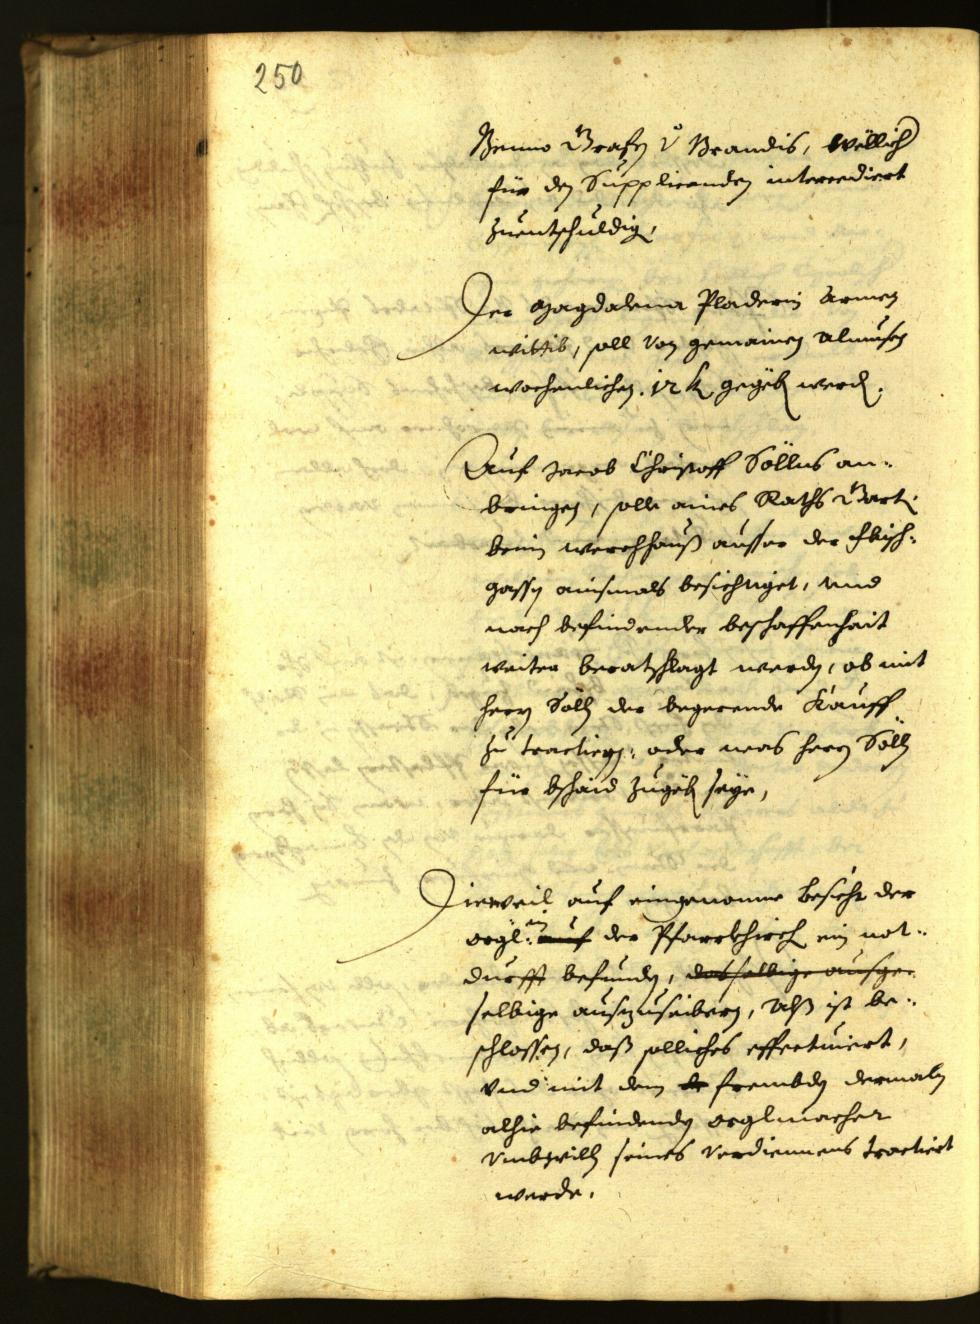 250
Benno Grafen v Brandis, wöllich
für den Supplicanden intercediert
zuentschuldig.
Der Magdalena Pladerin armen
wittib, soll von gemainen Almusen
wochenlichen 12 k gegeben werden.
Auf Jacob Christoff Söllns an-
bringen, solle aines Raths Gart
beim werchhauß ausser der Flisch-
gassen ainsmals besichtiget, vnd
nach befindender beschaffenhait
weiter beratschlagt werden, ob mit
herrn Sölln der begerende Kauff
zu tractiern, oder was herrn Sölln
für bschaid zugeben seye,
Dieweil auf eingenomne besicht der
orgl: auf in der Pfarrkhirch ein not-
durfft befunden, dasselbige ausge-
selbige auszuseibern, Alß ist be-
schlossen, daß solliches effectuiert,
Vnd mit dem be frembden dermaln
alhie befindenden orglmacher
vmbwilln seines verdiennens tractiert
werde.